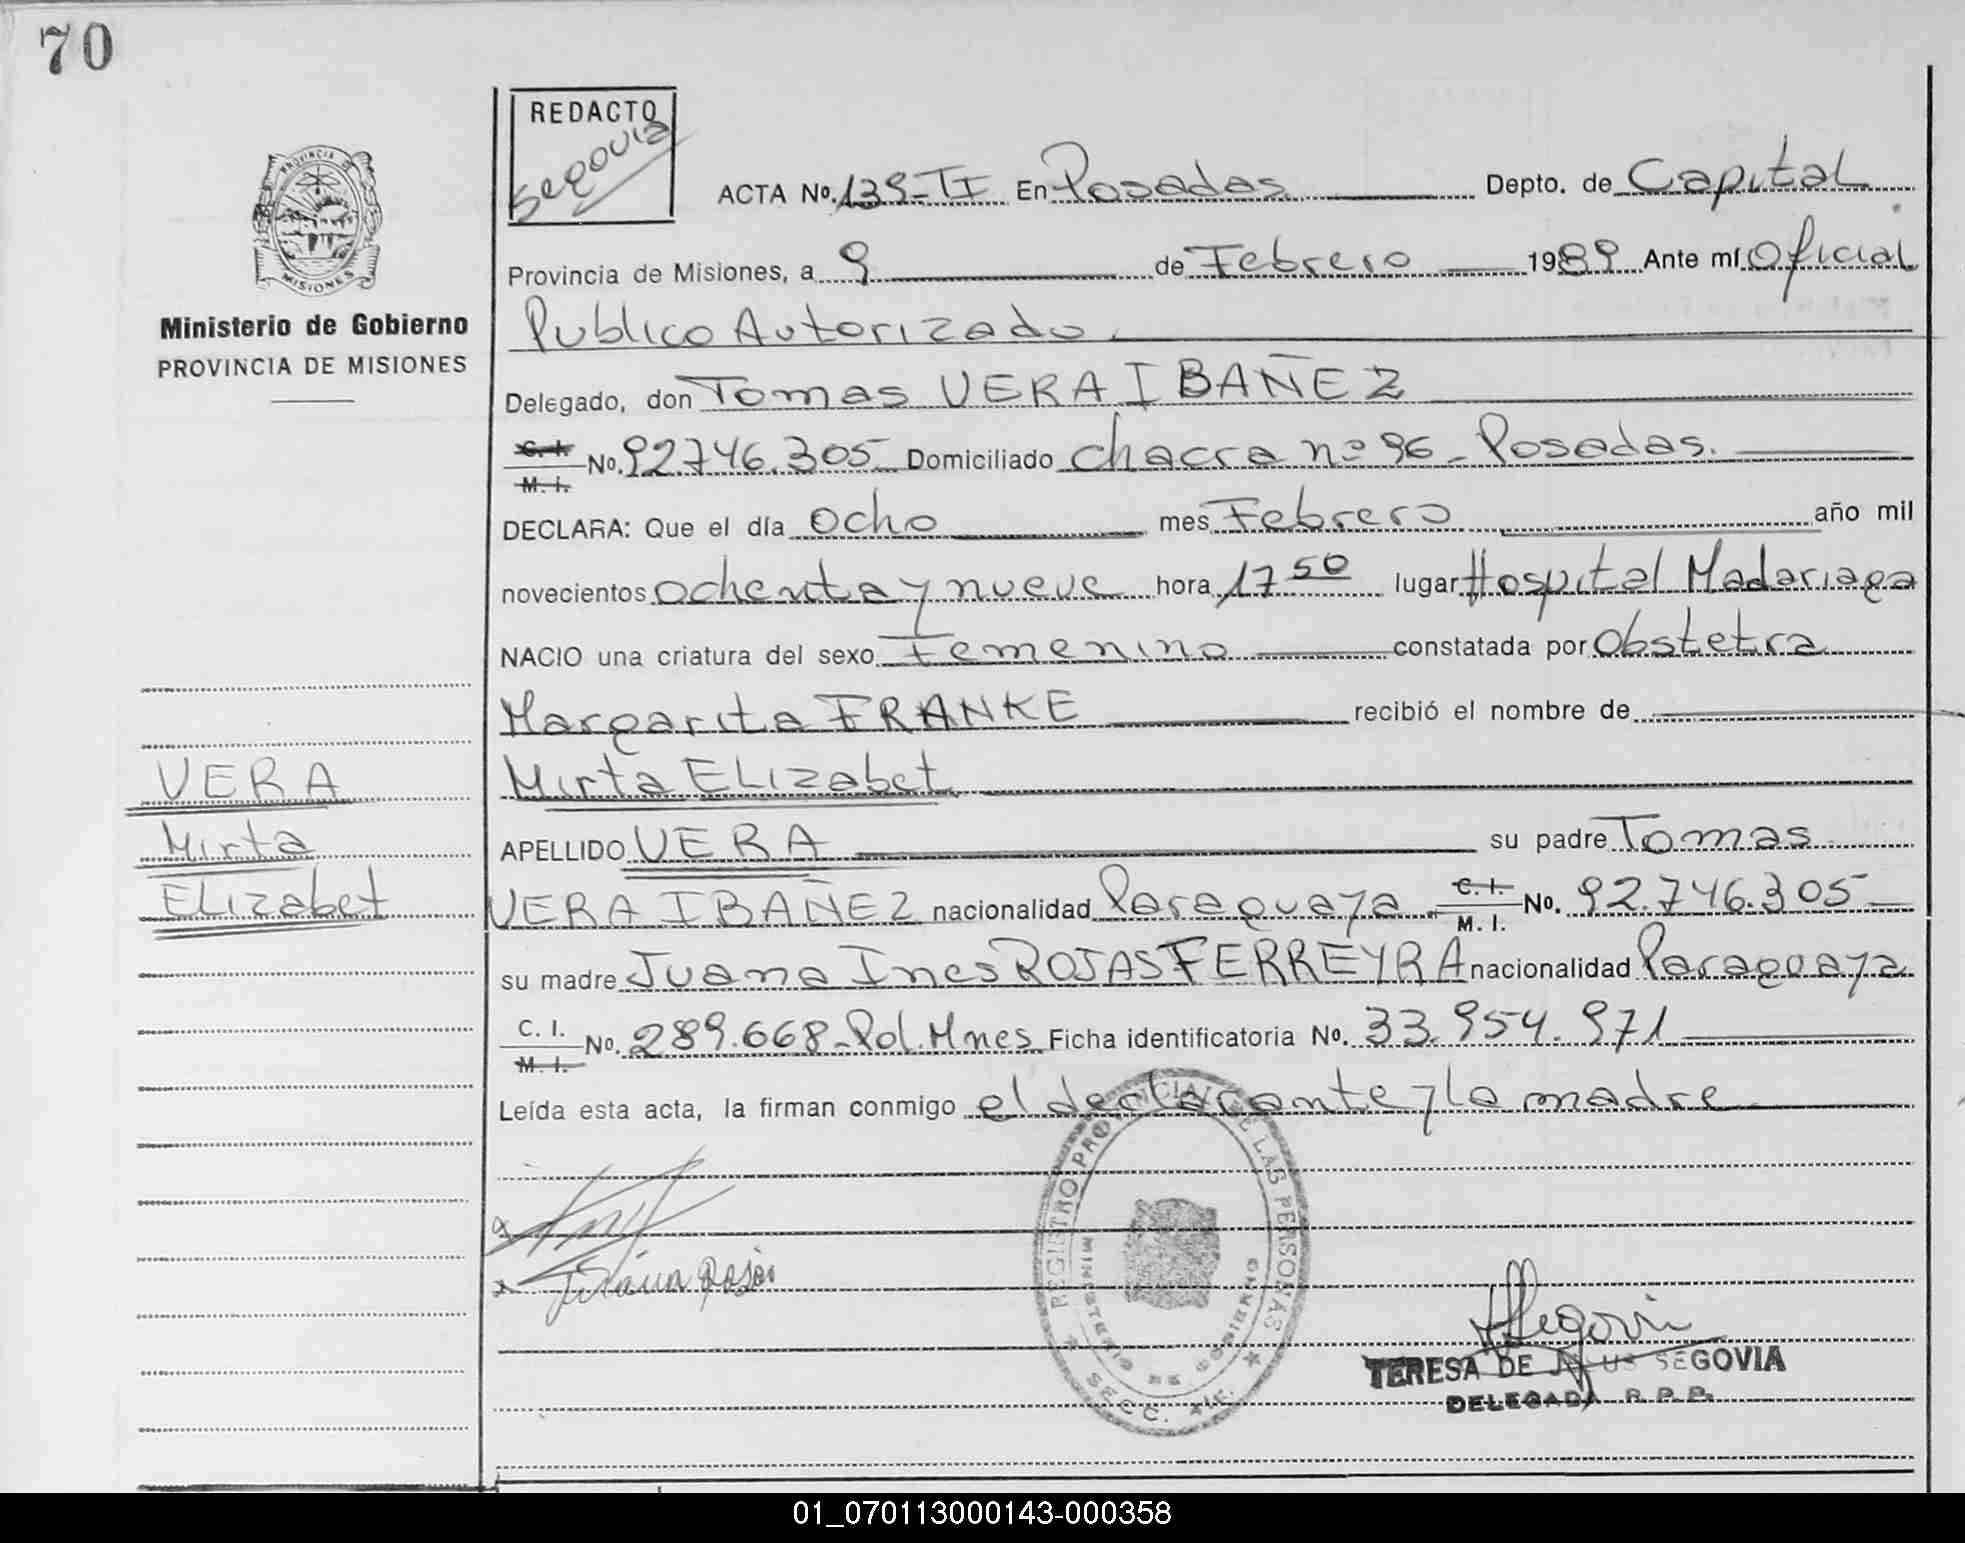 70
REDACTO
Segovia
ACTA No. 139-TI En Posadas Depto. de Capital
Provincia de Misiones, a 9 de Febrero 1989 Ante mí Oficial
Publico Autorizado
Delegado, don Tomas VERA IBAÑEZ
C. I. M. I. No. 92.746.305 Domiciliado chacra nº 96 - Posadas.
DECLARA: Que el día ocho mes Febrero año mil
novecientos ochenta y nueve hora 17 50 lugar Hospital Madariaga
NACIO una criatura del sexo Femenino constatada por Obstetra
Margarita FRANKE recibió el nombre de
Mirta ELizabet
APELLIDO VERA su padre Tomas
VERA IBAÑEZ nacionalidad Paraguaya C. I. M. I. No. 92.746.305
su madre Juana Ines ROJAS FERREYRA nacionalidad Paraguaya
C. I. M. I. No. 289.668-Pol. Mnes Ficha identificatoria No. 33.954.971
Leída esta acta, la firman conmigo el declarante y la madre
PROVINCIA DE
MISIONES
Ministerio de Gobierno
PROVINCIA DE MISIONES
VERA
Mirta
ELizabet
REGISTRO PROVINCIAL DE LAS PERSONAS
MINISTERIO DE GOBIERNO
SECC.
Rojas
Segovia
TERESA DE JESUS SEGOVIA
DELEGADA R. P. P.
01_070113000143-000358